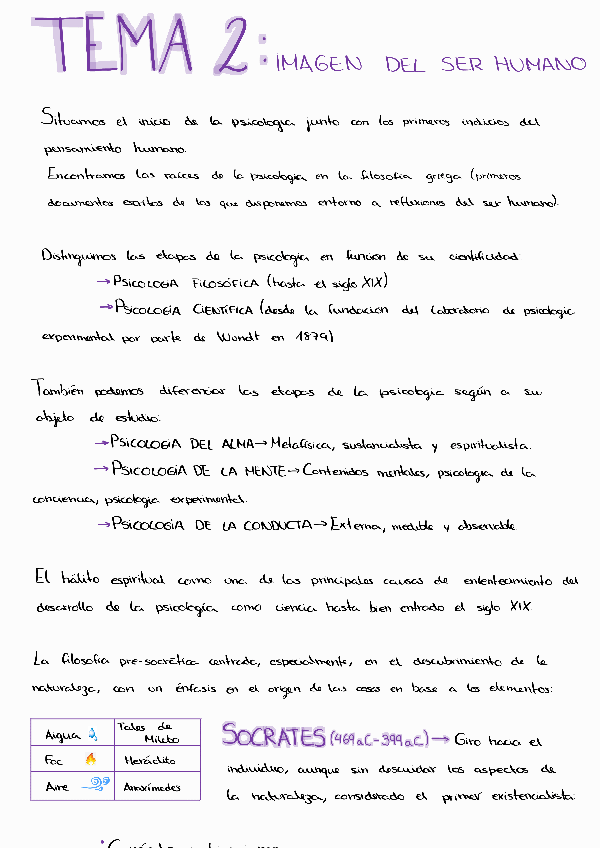 TEMA 2: IMAGEN DEL SER HUMANO
Situamos el inicio de la psicología junto con los primeros indicios del
pensamiento humano.
Encontramos las raíces de la psicología en la filosofía griega (primeros
documentos escritos de los que disponemos entorno a reflexiones del ser humano).
Distinguimos las etapas de la psicología en función de su cientificidad
→PSICOLOGÍA FILOSÓFICA (hasta el siglo XIX)
→PSICOLOGÍA CIENTÍFICA (desde la fundación del laboratorio de psicología
experimental por parte de Wundt en 1879)
También podemos diferenciar las etapas de la psicología según a su
objeto de estudio:
→PSICOLOGÍA DEL ALMA→Metafísica, sustancialista y espiritualista.
→PSICOLOGÍA DE LA MENTE→Contenidos mentales, psicología de la
conciencia, psicología experimental.
→PSICOLOGÍA DE LA CONDUCTA→Externa, medible y observable
El hálito espiritual como una de las principales causas de enlentecimiento del
desarrollo de la psicología como ciencia hasta bien entrado el siglo XIX
La filosofía pre-socrática centrada, especialmente, en el descubrimiento de la
naturaleza, con un énfasis en el origen de las cosas en base a los elementos:
Aigua Tales de Mileto
Foc Heráclito
Aire Anaxímedes
SOCRATES (469 a.C-399 a.C) → Giro hacia el
individuo, aunque sin descuidar los aspectos de
la naturaleza, considerado el primer existencialista.